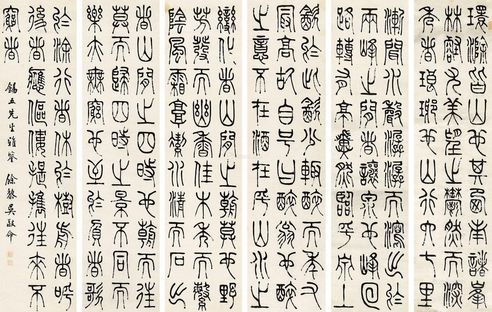 環滁皆山也其西南諸峯
林壑尤美望之蔚然而深
秀者琅琊也山行六七里
漸聞水聲潺潺而瀉出於
兩峰之間者讓泉也峰回
路轉有亭翼然臨於泉上
飲於此飲少輒醉而年又
冣高故自號曰醉翁也醉翁
之意不在酒在乎山水之
變化者山間之朝暮也野
芳發而幽香佳木秀而繁
陰風霜高潔水清而石出
者山間之四時也朝而往
暮而歸四時之景不同而
樂亦無窮也至於負者歌
於涂行者休於樹前者呼
後者應傴僂提攜往來不
窮者
錫五先生雅鑒